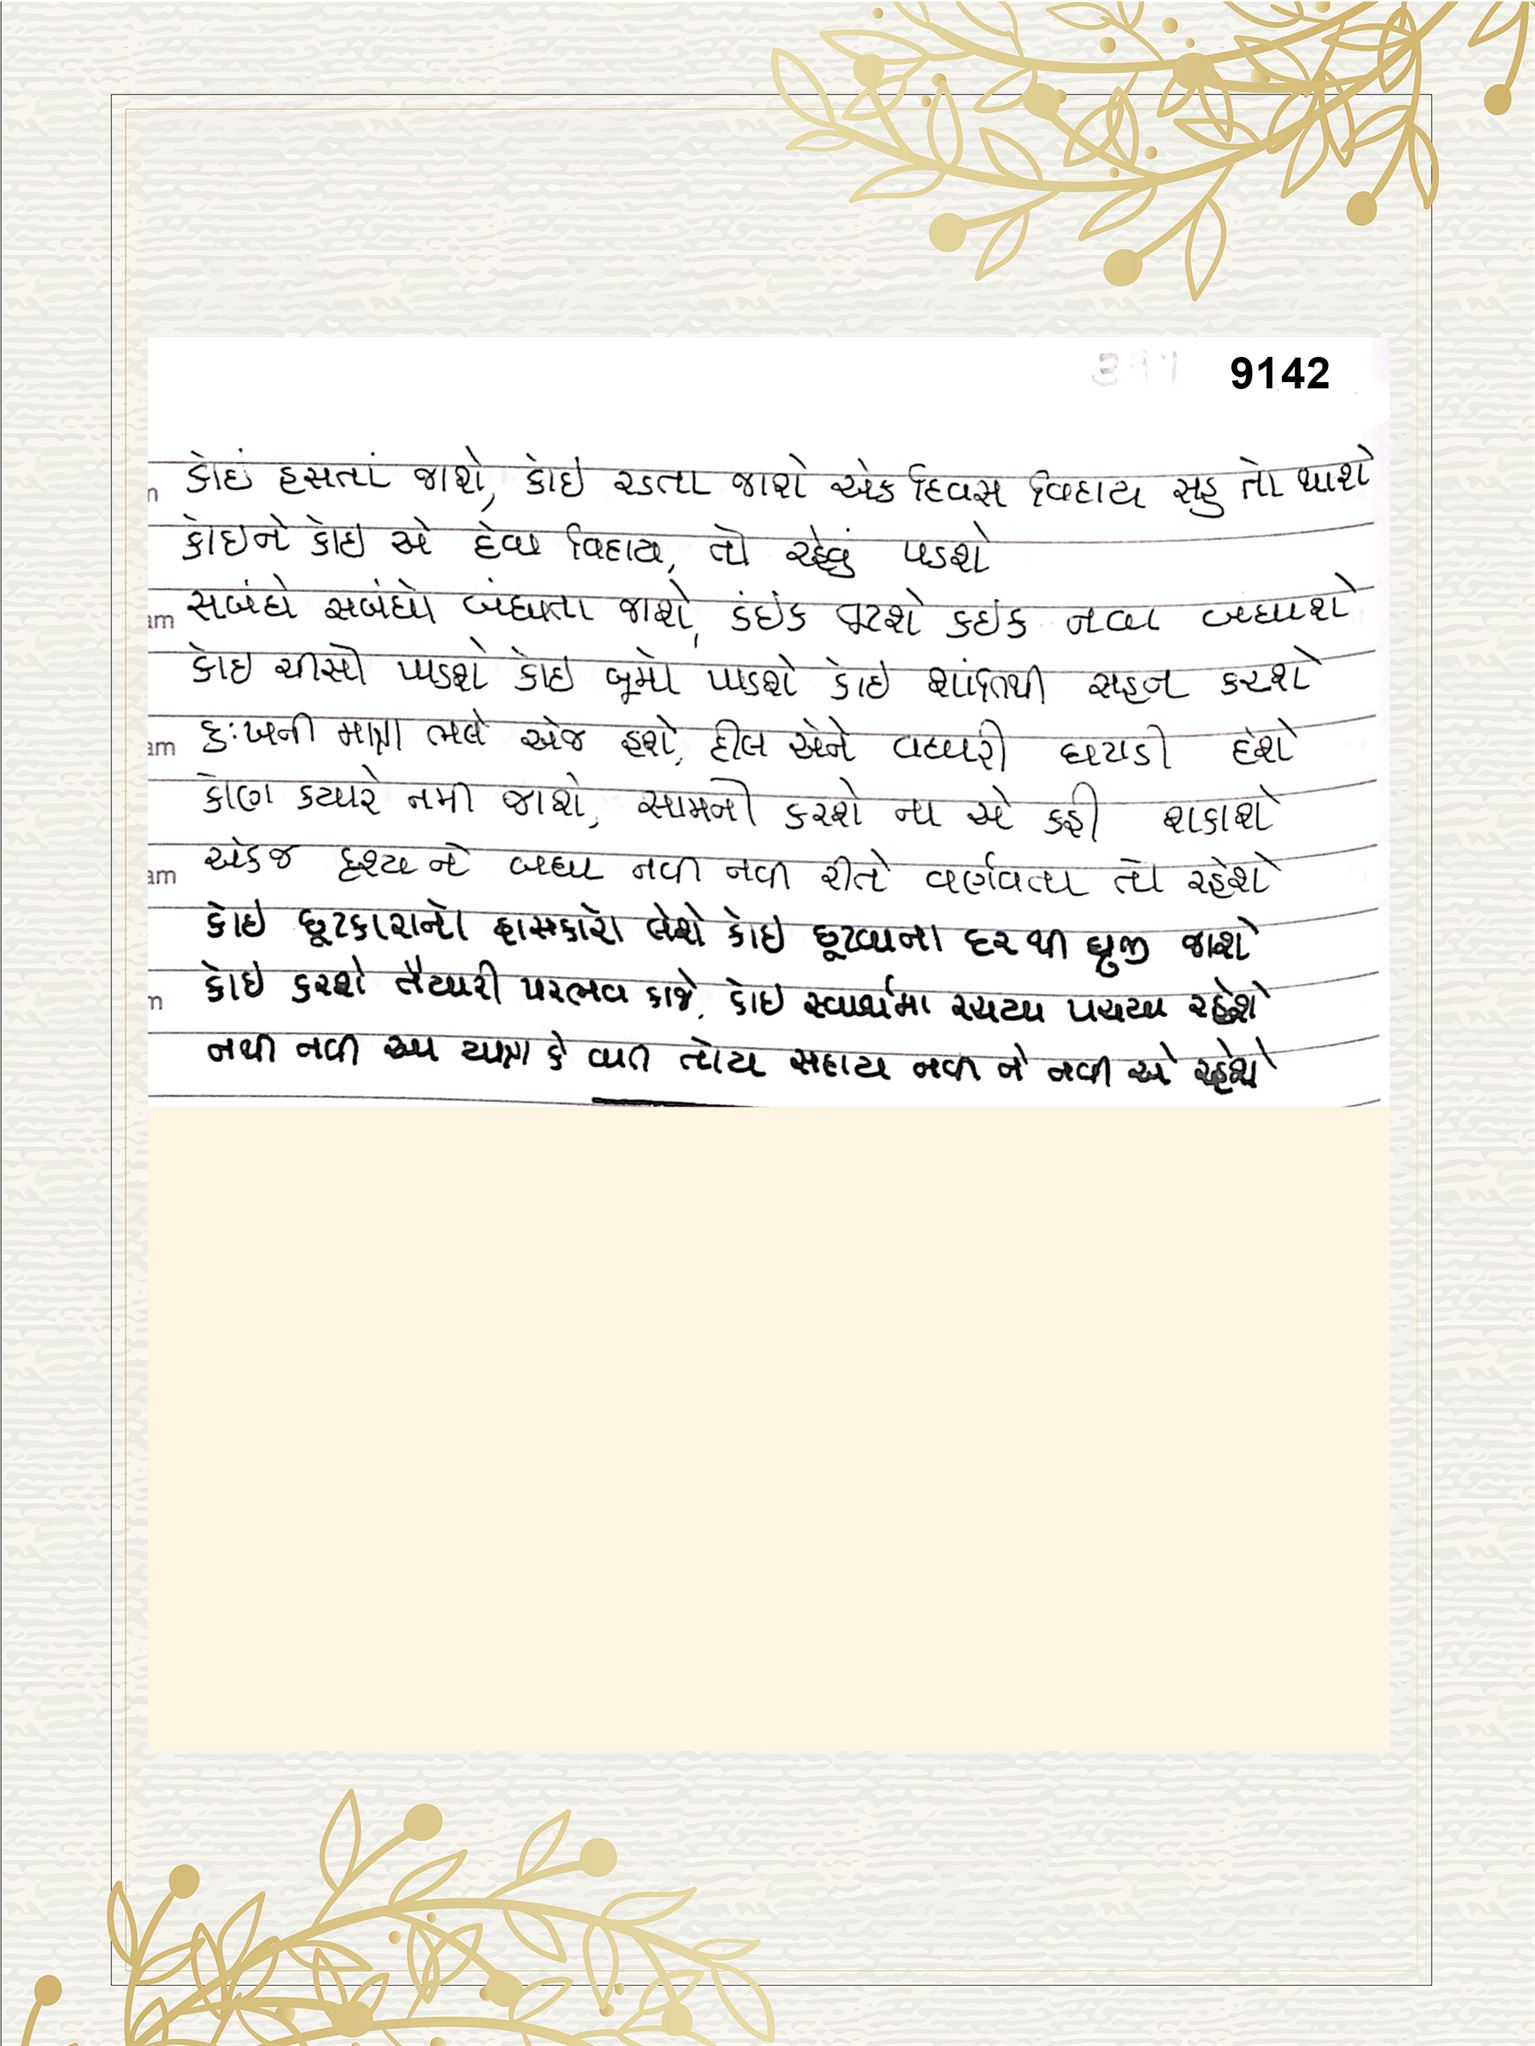 9142
કોઇ હસતાં જાશે, કોઇ રડતા જાશે એક દિવસ વિદાય સહુ તો થાશે
કોઇને કોઇ એ દેવા વિદાય, તો રહેવું પડશે
સબંધે સબંધો બંધાતા જાશે, કંઇક તૂટશે કઇક નવા બંધાશે
કોઇ ચીસો પાડશે કોઇ બૂમો પાડશે કોઇ શાંતિથી સહન કરશે
દુઃખની માત્રા ભલે એજ હશે, દીલ એને વધારી ઘટાડી દેશે
કોણ કયારે નમી જાશે, સામનો કરશે ના એ કહી શકાશે
એકજ દૃશ્ય ને બધા નવી નવી રીતે વર્ણવતા તો રહેશે
કોઇ છૂટકારાનો હાસકારો લેશે કોઇ છૂટવાના દર થી ધ્રુજી જાશે
કોઇ કરશે તૈયારી પરભવ કાજે, કોઇ સ્વાર્થમા રચ્યા પચ્યા રહેશે
નથી નવી આ યાત્રા કે વાત તોય સદાય નવી ને નવી એ રહેશે